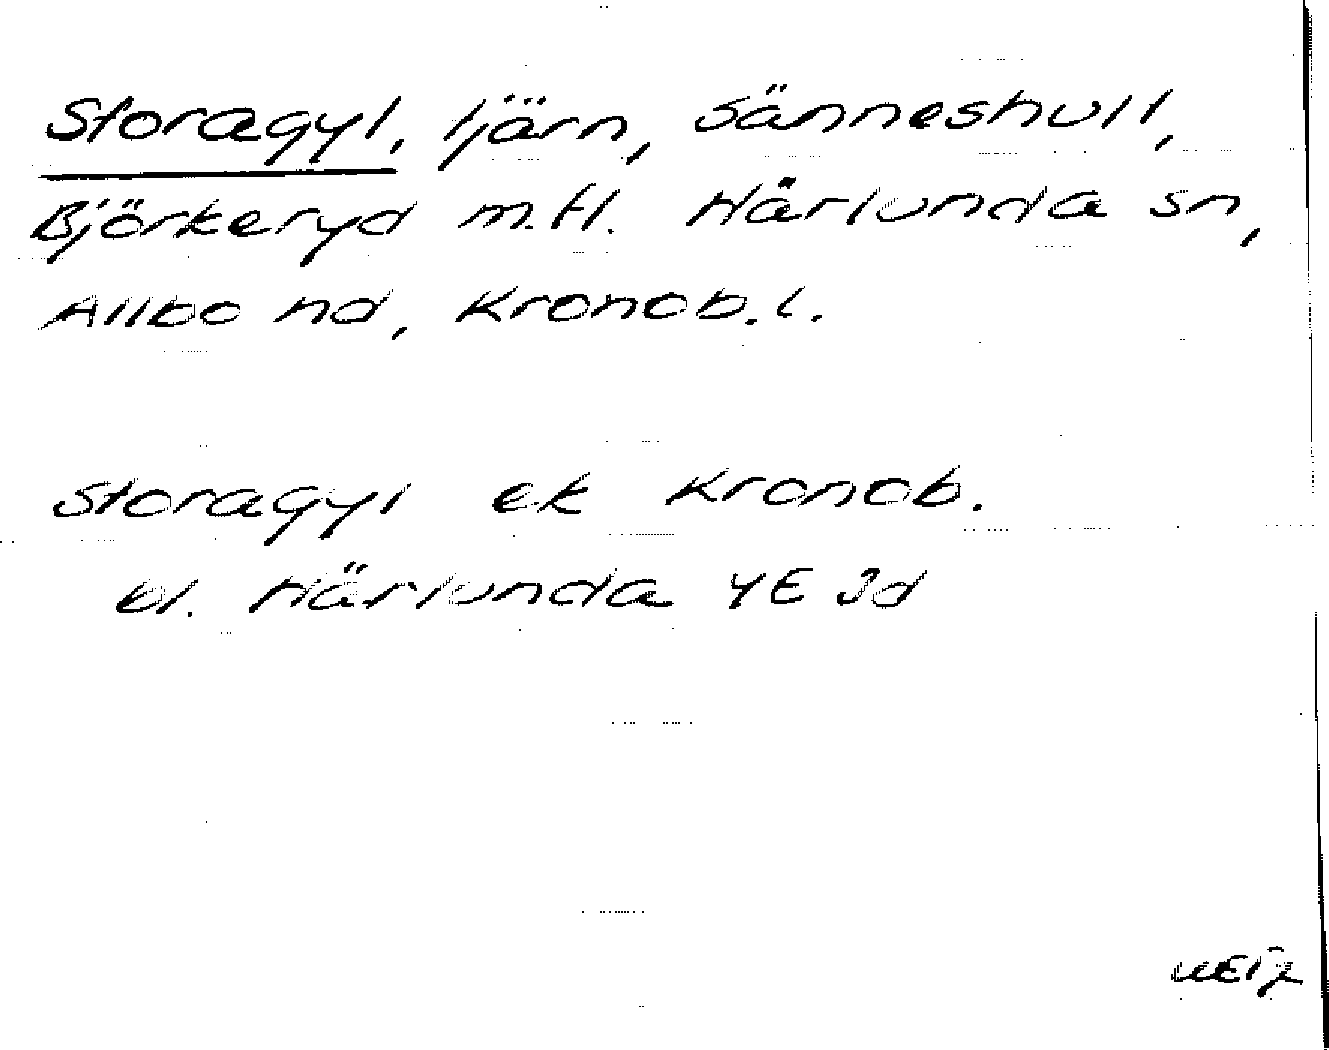 Storagyl, tjärn, Sänneshult,
Björkeryd m.fl. Härlunda sn,
Allbo hd, Kronob. l.
Storagyl ek Kronob.
bl. Härlunda 4E 3d